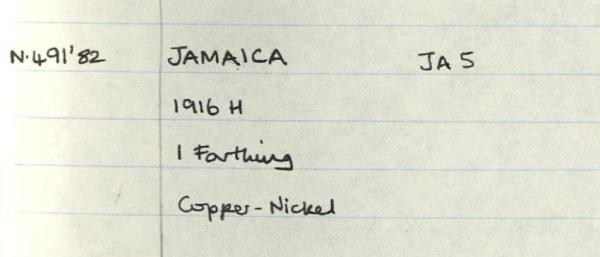 N.491'82 JAMAICA JA 5
1916 H
1 Farthing
Copper-Nickel